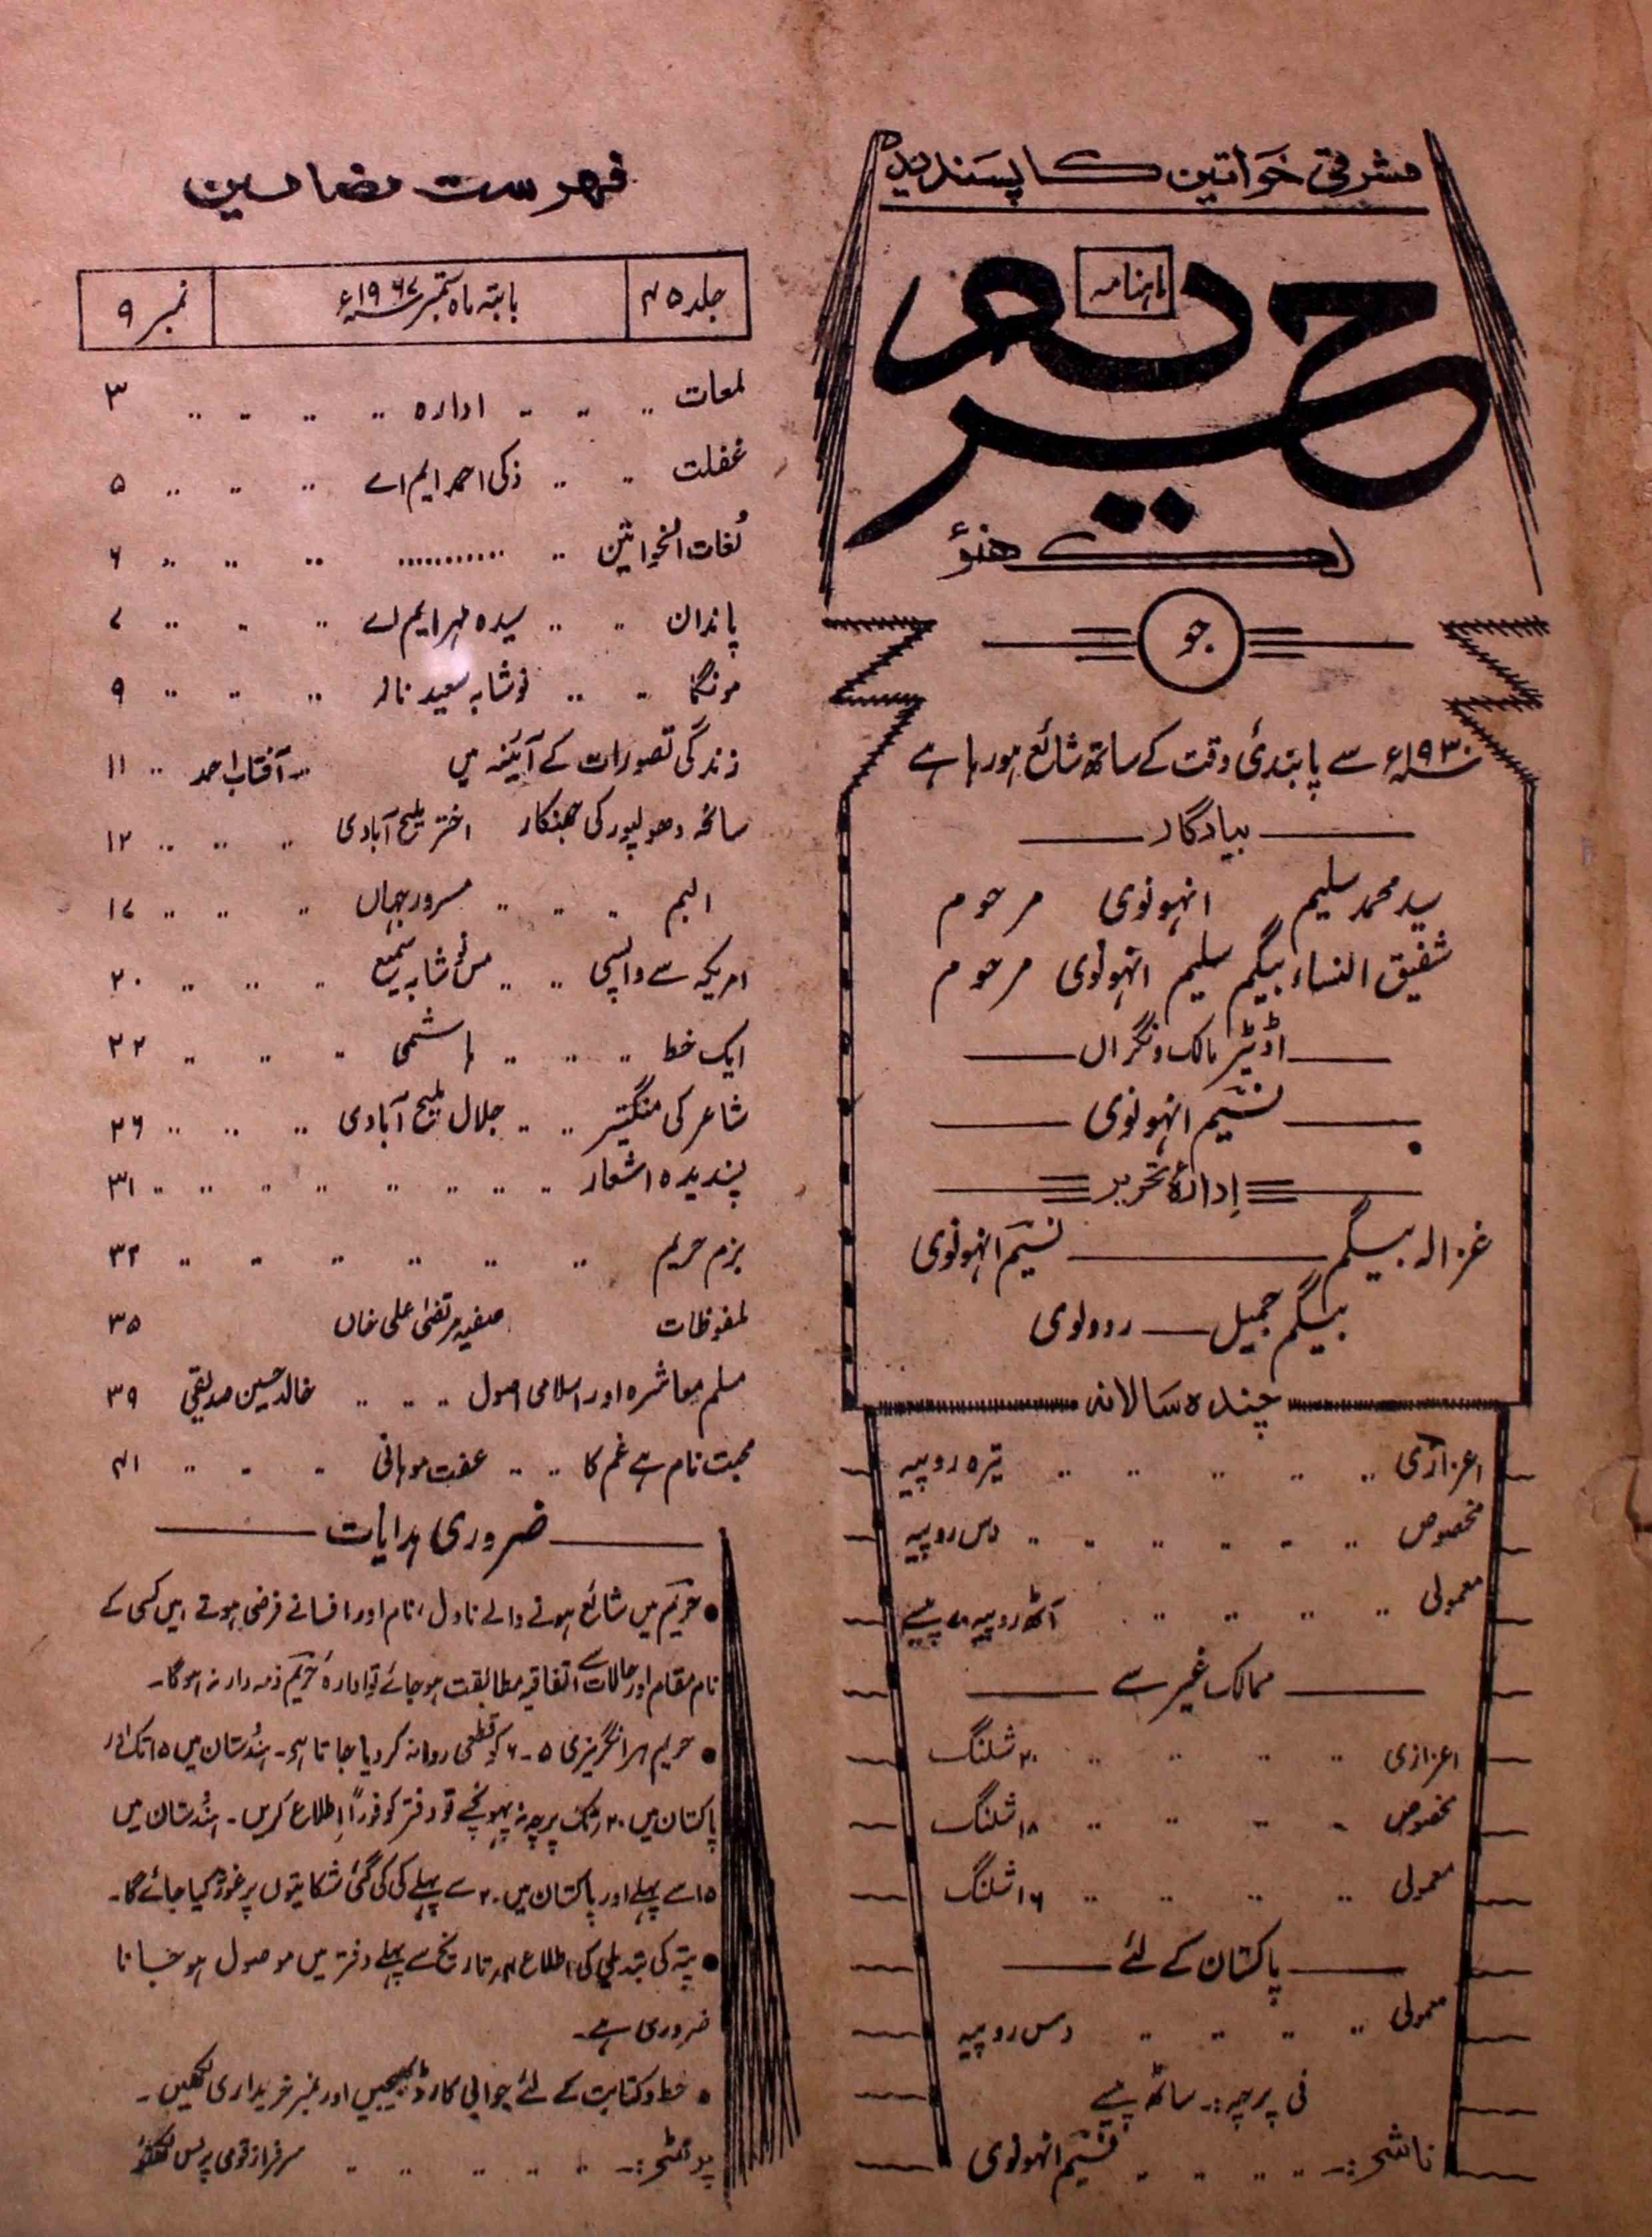 مشرقی خواتین کا پسندیدہ
ماہنامہ
حریم
لکھنؤ
جو
۱۹۳۰ء سے پابندئ وقت کے ساتھ شائع ہو رہا ہے
بیادگار
سید محمد سلیم انہونوی مرحوم
شفیق النساء بیگم سلیم انہونوی مرحوم
اڈیٹر مالک ونگراں
نسیم انہونوی
ادارۂ تحریر
غزالہ بیگم — نسیم انہونوی
بیگم جمیل — ردولوی
چندہ سالانہ
اعزازی .. .. .. .. تیرہ روپیہ
مخصوص .. .. .. .. دس روپیہ
معمولی .. .. .. .. آٹھ روپیہ پیسے
ممالک غیر سے
اعزازی .. .. .. .. ۲۰ شلنگ
مخصوص .. .. .. .. ۱۸ شلنگ
معمولی .. .. .. .. ۱۶ شلنگ
پاکستان کے لئے
معمولی .. .. .. .. دس روپیہ
فی پرچہ :۔ ساٹھ پیسے
ناشر :۔ .. .. .. نسیم انہونوی
فہرست مضامین
جلد ۴۵ بابتہ ماہ ستمبر ۱۹۶۷ء نمبر ۹
لمعات .. .. ادارہ .. .. ۳
غفلت .. .. ذکی احمد ایم اے .. .. ۵
لغات الخواتین .. ........... .. .. ۶
پاندان .. .. سیدہ مہر ایم اے .. .. ۷
مونگا .. .. نوشابہ سعید نالہ .. .. ۹
زندگی تصورات کے آئینہ میں .. آفتاب احمد .. ۱۱
سانحہ دھولپور کی جھنکار اختر ملیح آبادی .. .. ۱۲
البم .. .. مسرور جہاں .. .. ۱۷
امریکہ سے واپسی .. .. مس نوشابہ سمیع .. .. ۲۰
ایک خط .. .. ہاشمی .. .. ۲۲
شاعر کی منگیتر .. .. جلال ملیح آبادی .. .. ۲۶
پسندیدہ اشعار .. .. .. .. ۳۱
بزم حریم .. .. .. .. ۳۲
لمفوظات صفیہ مرتضیٰ علی خاں ۳۵
مسلم معاشرہ اور اسلامی اصول .. .. خالد حسین صدیقی ۳۹
محبت نام ہے غم کا .. .. عفت موہانی .. .. ۴۱
ضروری ہدایات
• حریم میں شائع ہونے والے ناول، نام اور افسانے فرضی ہوتے ہیں کسی کے
نام مقام اور حالات سے اتفاقیہ مطابقت ہو جائے تو ادارہ حریم ذمہ دار نہ ہوگا۔
• حریم ہر انگریزی ۵-۶ کو قطعی روانہ کر دیا جاتا ہے۔ ہندستان میں ۱۵ تک اور
پاکستان میں ۲۰ تک پرچہ نہ پہونچے تو دفتر کو فوراً اطلاع کریں۔ ہندستان میں
۱۵ سے پہلے اور پاکستان میں ۲۰ سے پہلے کی کی گئی شکایتوں پر غور نہ کیا جائے گا۔
• پتہ کی تبدیلی کی اطلاع تاریخ سے پہلے دفتر میں موصول ہو جانا
ضروری ہے۔
• خط و کتابت کے لئے جوابی کارڈ بھیجیں اور نمبر خریداری لکھیں۔
پرنٹر :۔ .. .. .. سرفراز قومی پریس لکھنؤ